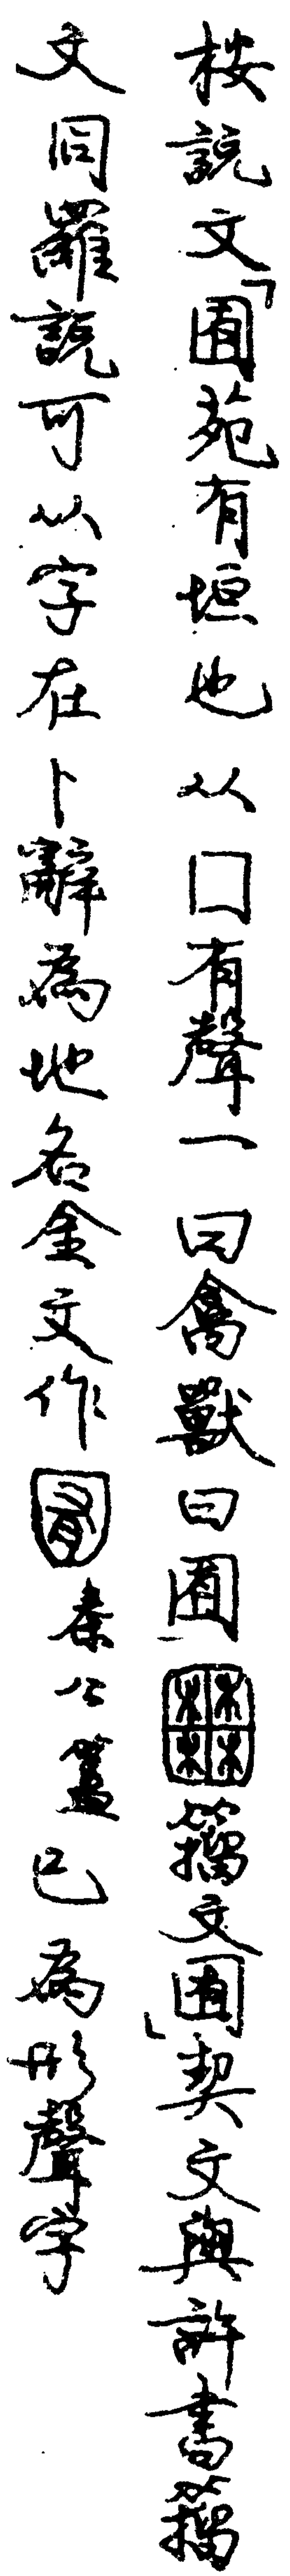 桉說文「囿苑有垣也从囗有聲一曰禽獸曰囿𡈹籒文囿」契文與許書籒
文同羅說可以字在卜辭為地名金文作囿秦公簋已為形聲字